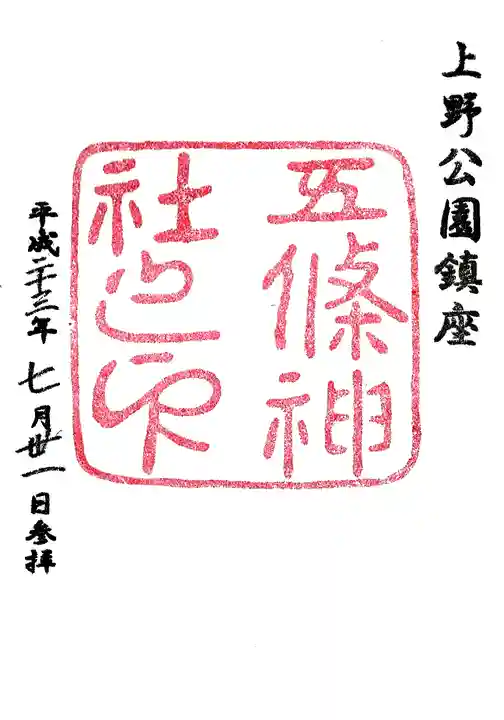 上野公園鎮座
五條神
社之印
平成二十三年七月卅一日参拝